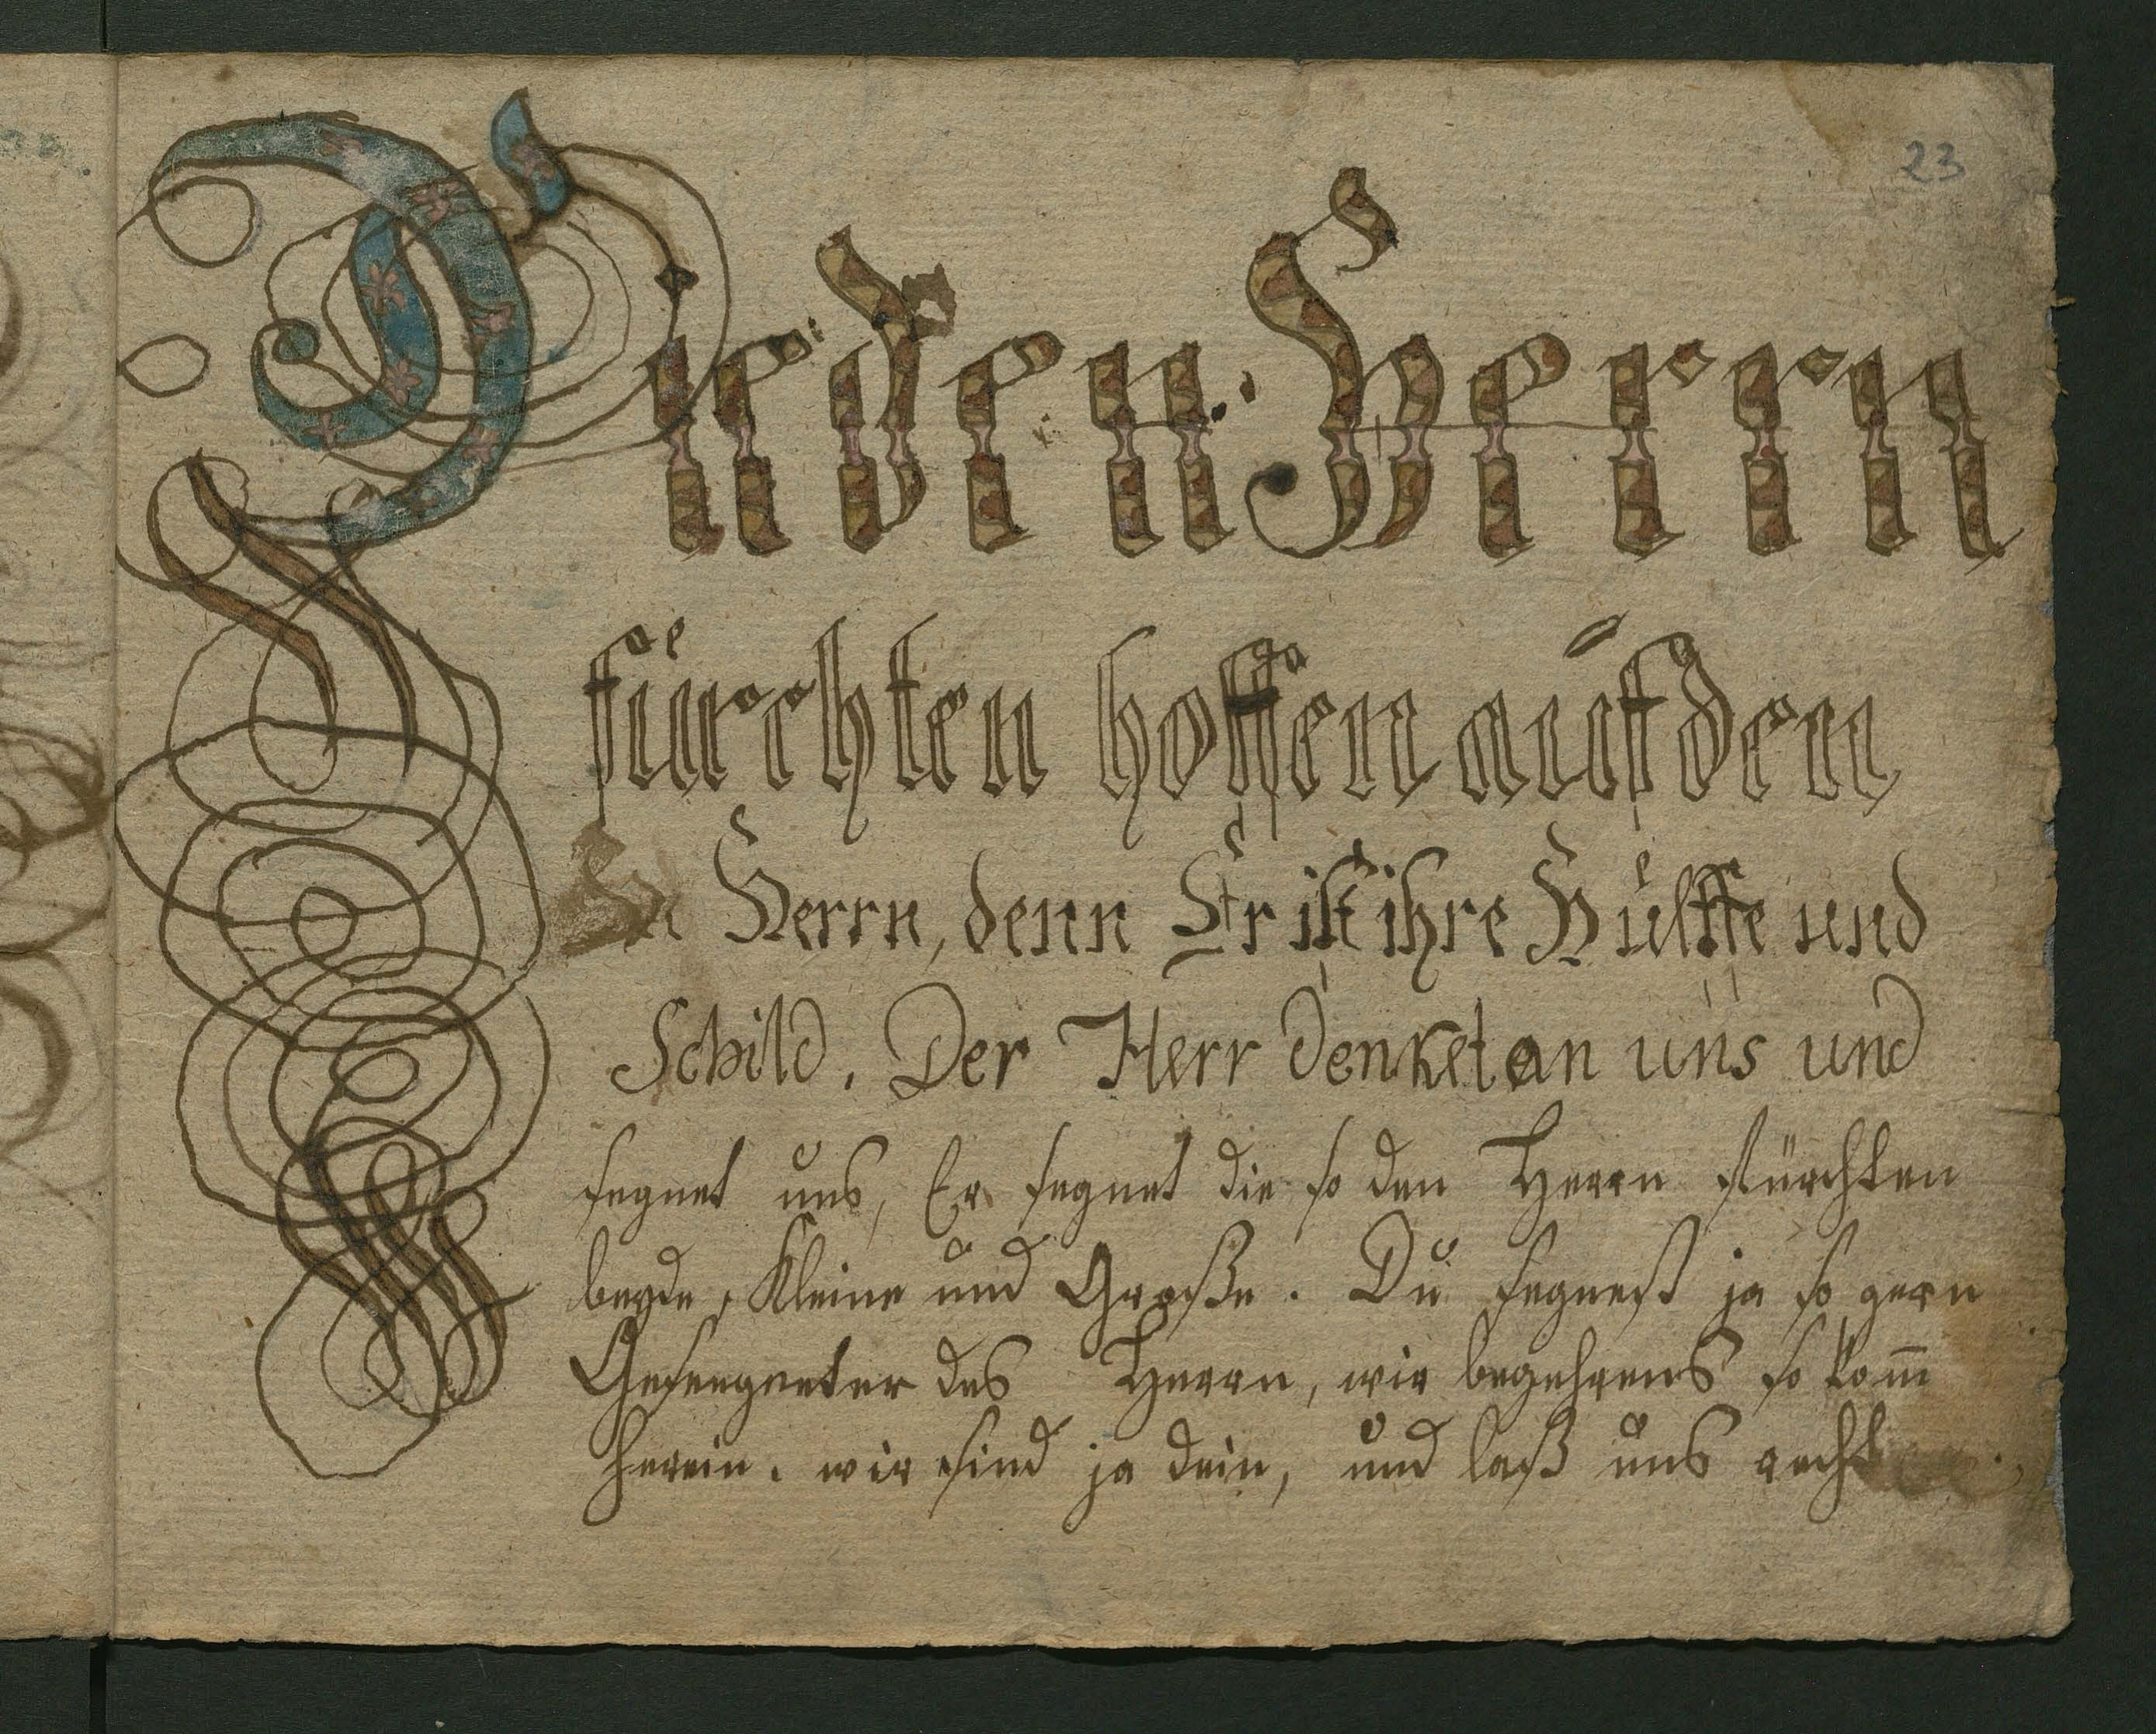 23
Die den Herrn
fürchten hoffen auf den
Herrn, denn Er ist ihre Hülffe und
Schild. Der Herr denket an uns und
segnet uns, Er segnet die so den Herrn fürchten
beyde, Kleine und Große. Du segnest ja so gern
Geseegneter des Herrn, wir begehrens so kom̅
herein. wir sind ja dein, und laß uns recht